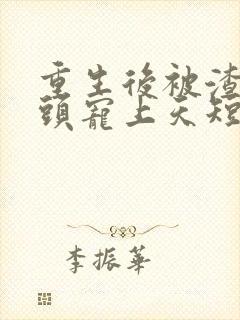 重生後被渣
頭寵上天短
李振華